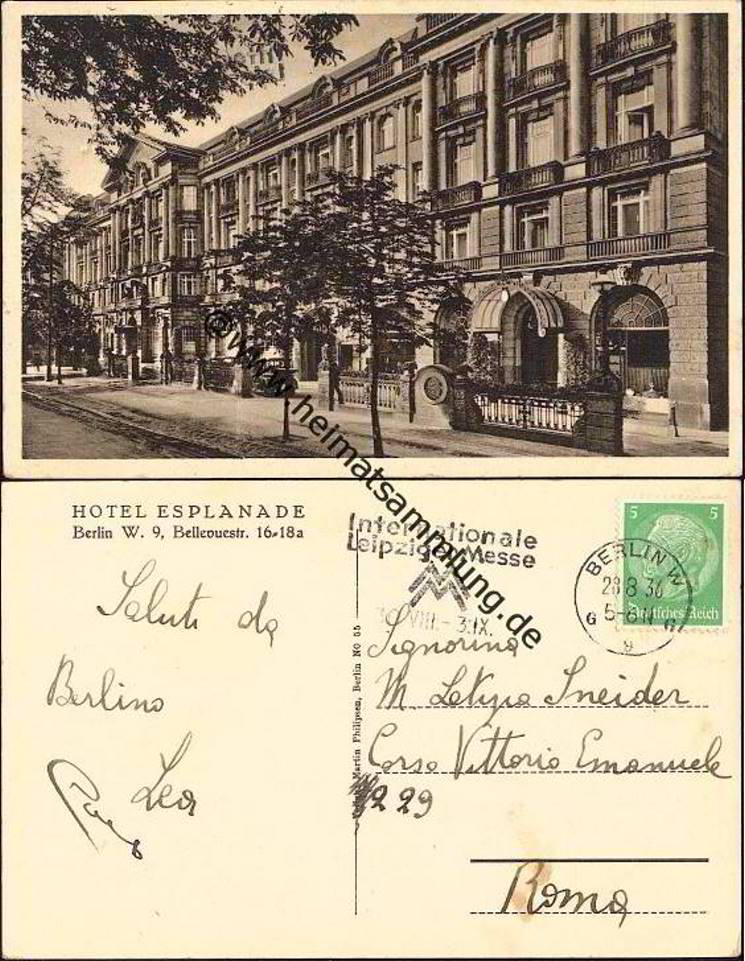 @www.heimatsammlung.de
HOTEL ESPLANADE
Berlin W. 9, Bellevuestr. 16-18a
Internationale
Leipziger Messe
30. VIII. - 3. IX.
BERLIN W
28.8.36
5-6
9
5 5
Deutsches Reich
Saluti da
Berlino
Lea
Signorina
M. Letizia Sneider
Corso Vittorio Emanuele
229
Roma
Martin Philipsen, Berlin NO 55